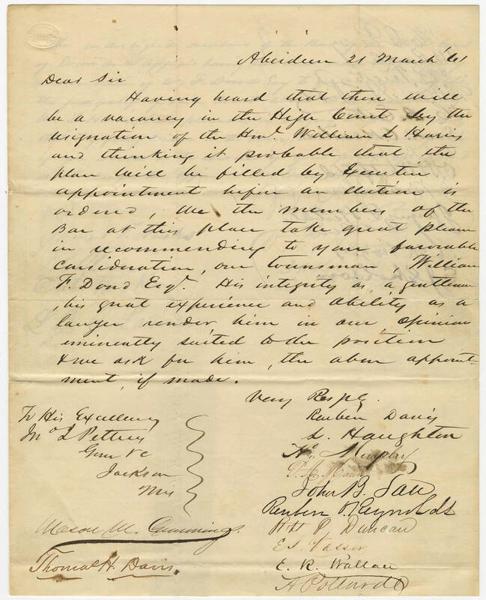 Aberdeen 21 March '61
Dear Sir
Having heard that there will
be a vacancy in the High Court by the
resignation of the Hon. William L Harris
and thinking it probable that the
place will be filled by Executive
appointment before an election is
ordered, We the members of the
Bar at this place take great pleasure
in recommending to your favorable
consideration, our townsman William
F. Dowd Esqr. His integrity as a gentleman
, his great experience and ability as a
lawyer render him in our opinion
eminently suited to the position
& we ask for him, the above appoint-
ment, if made.
Very Respy.
Reuben Davis
L. Haughton
Murphy
John B.
Reuben O Reynolds
P Duncan
E. R. Wallace
To His Excellency
Jno J Pettus
Gov &c
Jackson
Miss
M. Cummings
Thomas H. Davis.